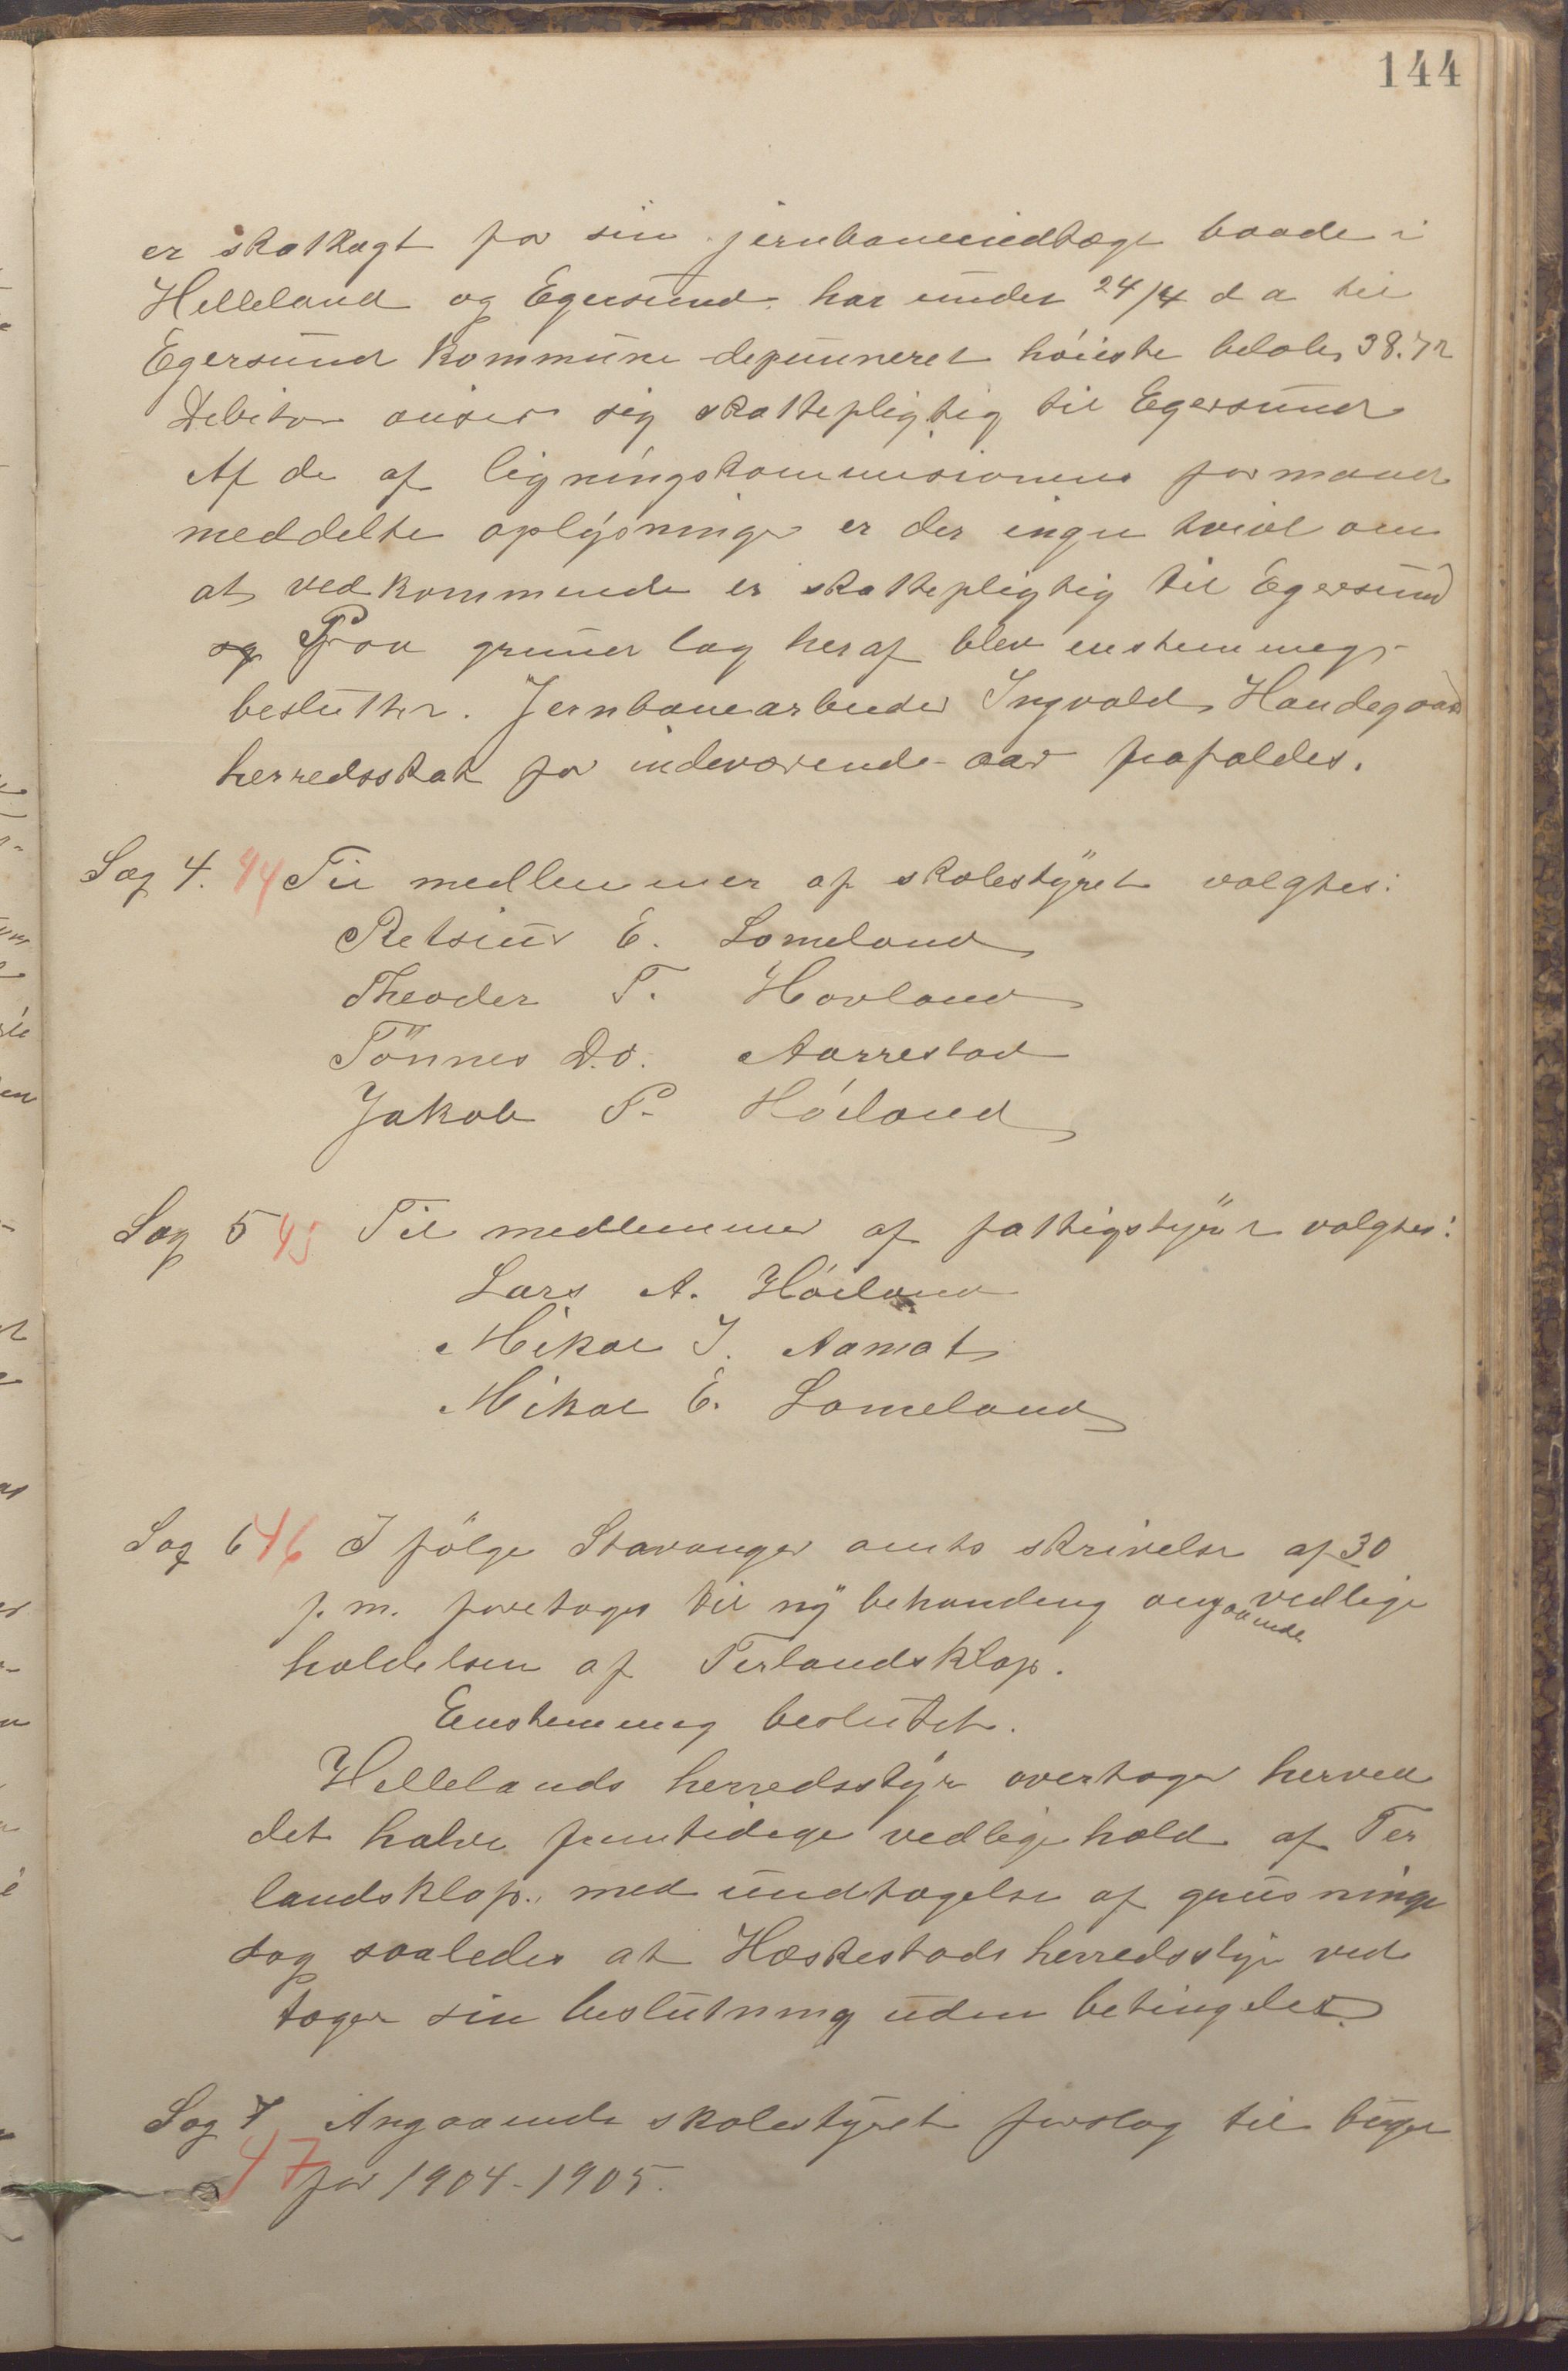 144
er skatlagt for sin jernbaneindtægt baade i
Helleland og Egersund har under 24/4 d a til
Egersund kommune depunneret höieste beløb, 38.72
Debitor anser sig skattepligtig til Egersund
Af de af ligningskommisionens formand
meddelte oplysninger er der ingen tvivl om
at vedkommende er skattepligtig til Egersund
og Paa grunnlag heraf blev enstemmeg
besluttet. Jernbanearbeider Ingvald Handegaard
herredsskat for indeværende aar frafaldes.
Sag 4. 44 Til medlemmer af skolestyret valgtes:
Retsius E. Lomeland
Theoder T. Hovland
Tönnes D.O. Aarrestad
Jakob P. Höiland
Sag 5 45 Til medlemmer af fattigstyret valgtes:
Lars A. Höiland
Mikal J. Aamot
Mikal E. Lomeland
Sag 6 46 I fölge Stavanger amts skrivelse af 30
f. m. foretages til ny behandling angaaende vedlige
holdelsen af Terlandsklop.
Enstemmeg beslutet.
Hellelands herredsstyre overtager herved
det halve fremtidige vedligehold af Ter
landsklop. med undtagelse af grusninge
dog saaledes at Heskestads herredsstyre ved
tager sin beslutning uden betingelse.
Sag 7 Angaaende skolestyret forslag til
47 for 1904-1905.